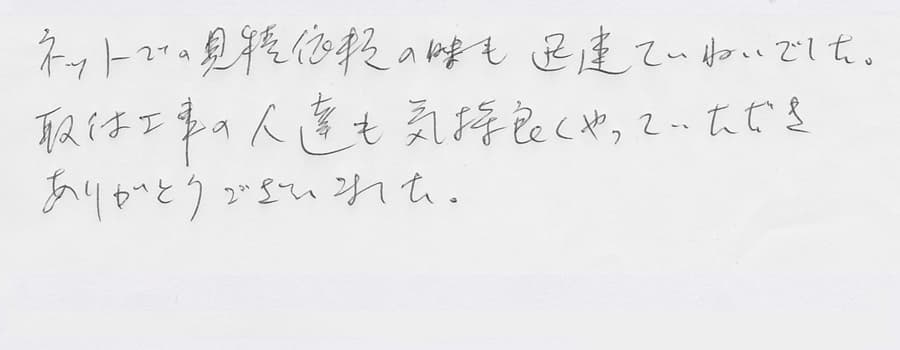 ネットでの見積依頼の時も 迅速ていねいでした。
取付工事の人達も気持良くやっていただき
ありがとうございました。